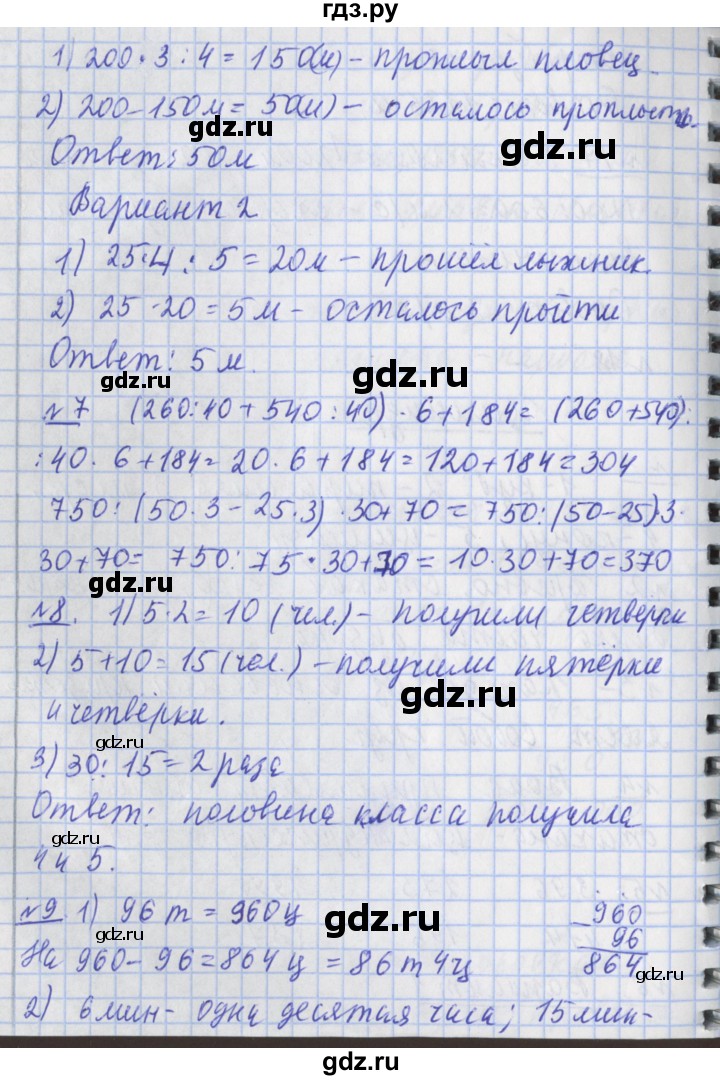 гдз.ру
1) 200·3:4=150(м)- проплыл пловец
2) 200-150м=50(м)- осталось проплыть.
gdz.ru
gdz.ru
Ответ: 50м
Вариант 2
1) 25·4:5=20м- прошёл лыжник
gdz.ru
2) 25-20=5м- осталось пройти
Ответ: 5м.
gdz.ru
gdz.ru
№7 (260:40+540:40)·6+184=(260+540):
:40·6+184=20·6+184=120+184=304
750:(50·3-25·3)·30+70=750:(50-25)·3·
gdz.ru
30+70=750:75·30+70=10·30+70=370
№8. 1) 5·2=10 (чел.)- получили четверки
gdz.ru
2) 5+10=15(чел.)-получили пятёрки
gdz.ru
и четвёрки.
gdz.ru
3) 30:15=2 раза
Ответ: половина класса получила
gdz.ru
4 и 5.
№9 1) 96т=960ц
960
96
864
gdz.ru
gdz.ru
На 960-96=864ц=86т4ц
2) 6мин- одна десятая часа; 15мин-
gdz.ru